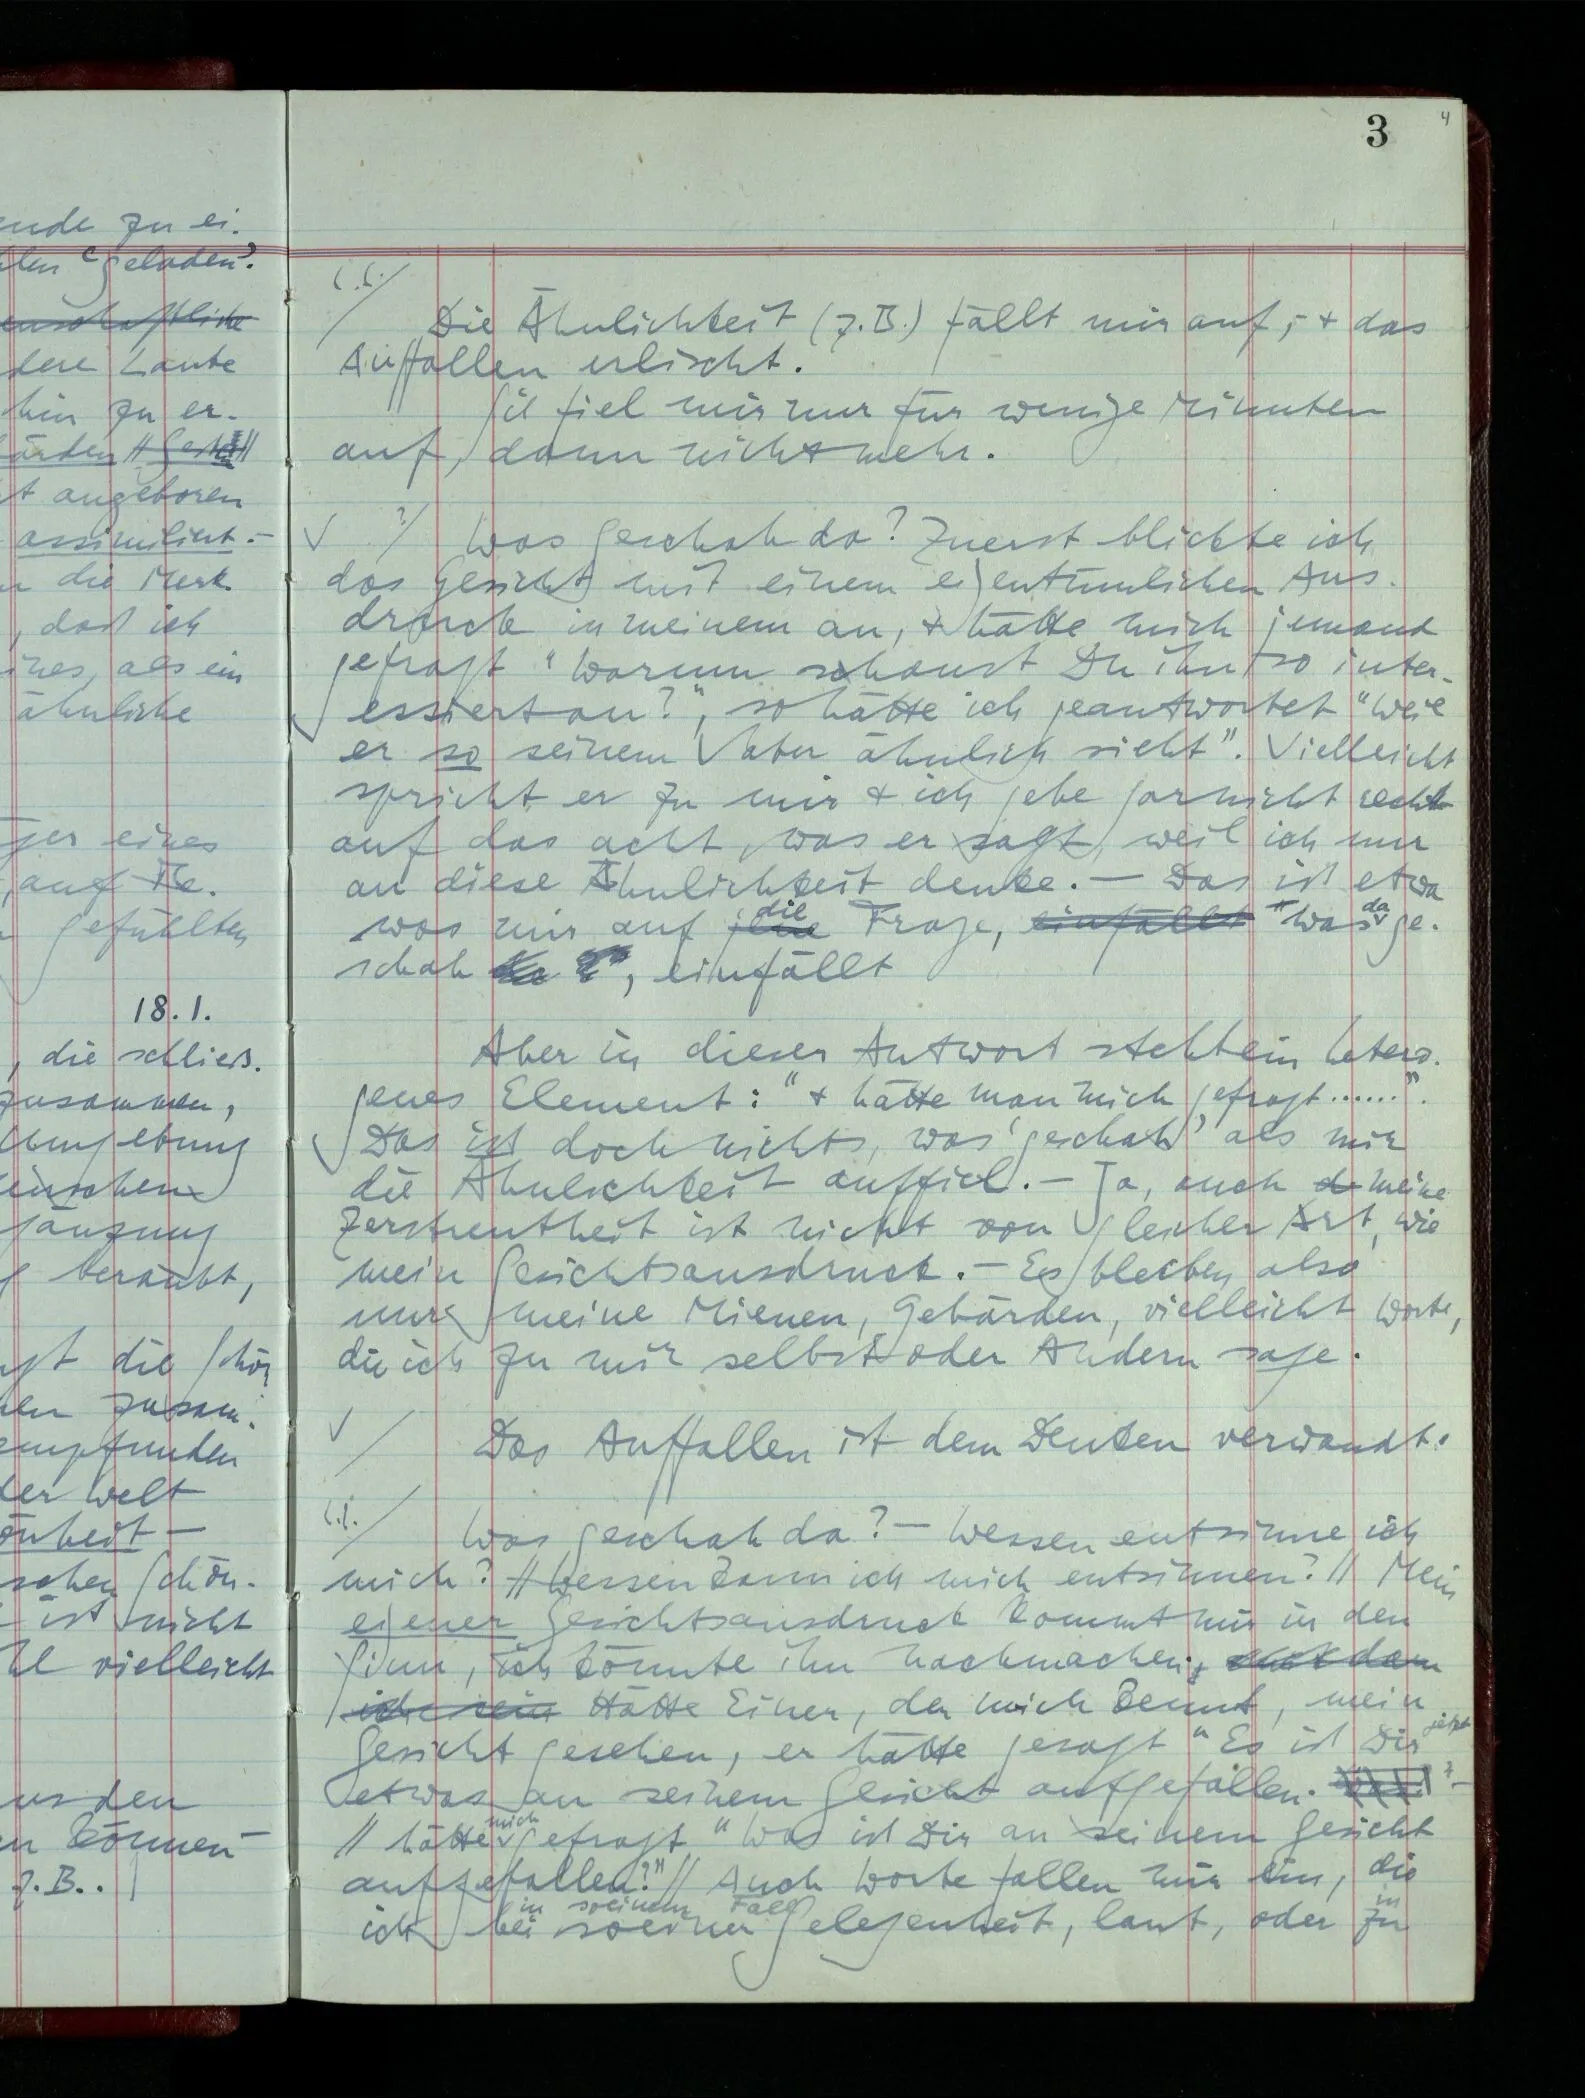 ende zu ei-
len "geladen".
enschaftliche
dere Laute
hin zu er-
ärden // Gest //
t angeboren
assimiliert. –
die Merk
, daß ich
ines, als ein
ähnliche
ger eines
, auf Be-
gefühlten
18.1.
, die schließ-
zusammen,
Umgebung
enschen
gänzung
beraubt,
gt die Schön
en zusam-
empfunden
der Welt
önheit –
schen Schön-
ist nicht
hl vielleicht
us den
en können –
z.B..
3 4
/ Die Ähnlichkeit (z.B.) fällt mir auf, – + das
Auffallen erlischt.
Sie fiel mir nur für wenige Minuten
auf, dann nicht mehr.
✓ ?/ Was geschah da? Zuerst blickte ich
das Gesicht mit einem eigentümlichen Aus-
druck in meinem an, + hätte mich jemand
gefragt "Warum schaust Du ihn so inter-
essiert an?", so hätte ich geantwortet "Weil
er so seinem Vater ähnlich sieht". Vielleicht
spricht er zu mir + ich gebe garnicht recht
auf das acht, was er sagt, weil ich nur
an diese Ähnlichkeit denke. – Das ist etwa
was mir auf die Frage, einfällt "Was da ge-
schah", einfällt
Aber in dieser Antwort steht ein hetero-
genes Element: "+ hätte man mich gefragt......".
Das ist doch nichts, was 'geschah' als mir
die Ähnlichkeit auffiel. – Ja, auch meine
Zerstreutheit ist nicht von gleicher Art, wie
mein Gesichtsausdruck. – Es bleiben also
nur meine Mienen, Gebärden, vielleicht Worte,
die ich zu mir selbst oder Andern sage.
✓ / Das Auffallen ist dem Denken verwandt.
/ Was geschah da? – Wessen entsinne ich
mich? // Wessen kann ich mich entsinnen? // Mein
eigener Gesichtsausdruck kommt mir in den
Sinn, ich könnte ihn nachmachen.
Hätte Einer, der mich kennt, mein
Gesicht gesehen, er hätte gesagt "Es ist Dir jetzt
etwas an seinem Gesicht aufgefallen. –
// hätte mich gefragt "Was ist Dir an seinem Gesicht
aufgefallen?" // Auch Worte fallen mir ein, die
ich in so einem Fall bei so einer Gelegenheit, laut, oder in zu